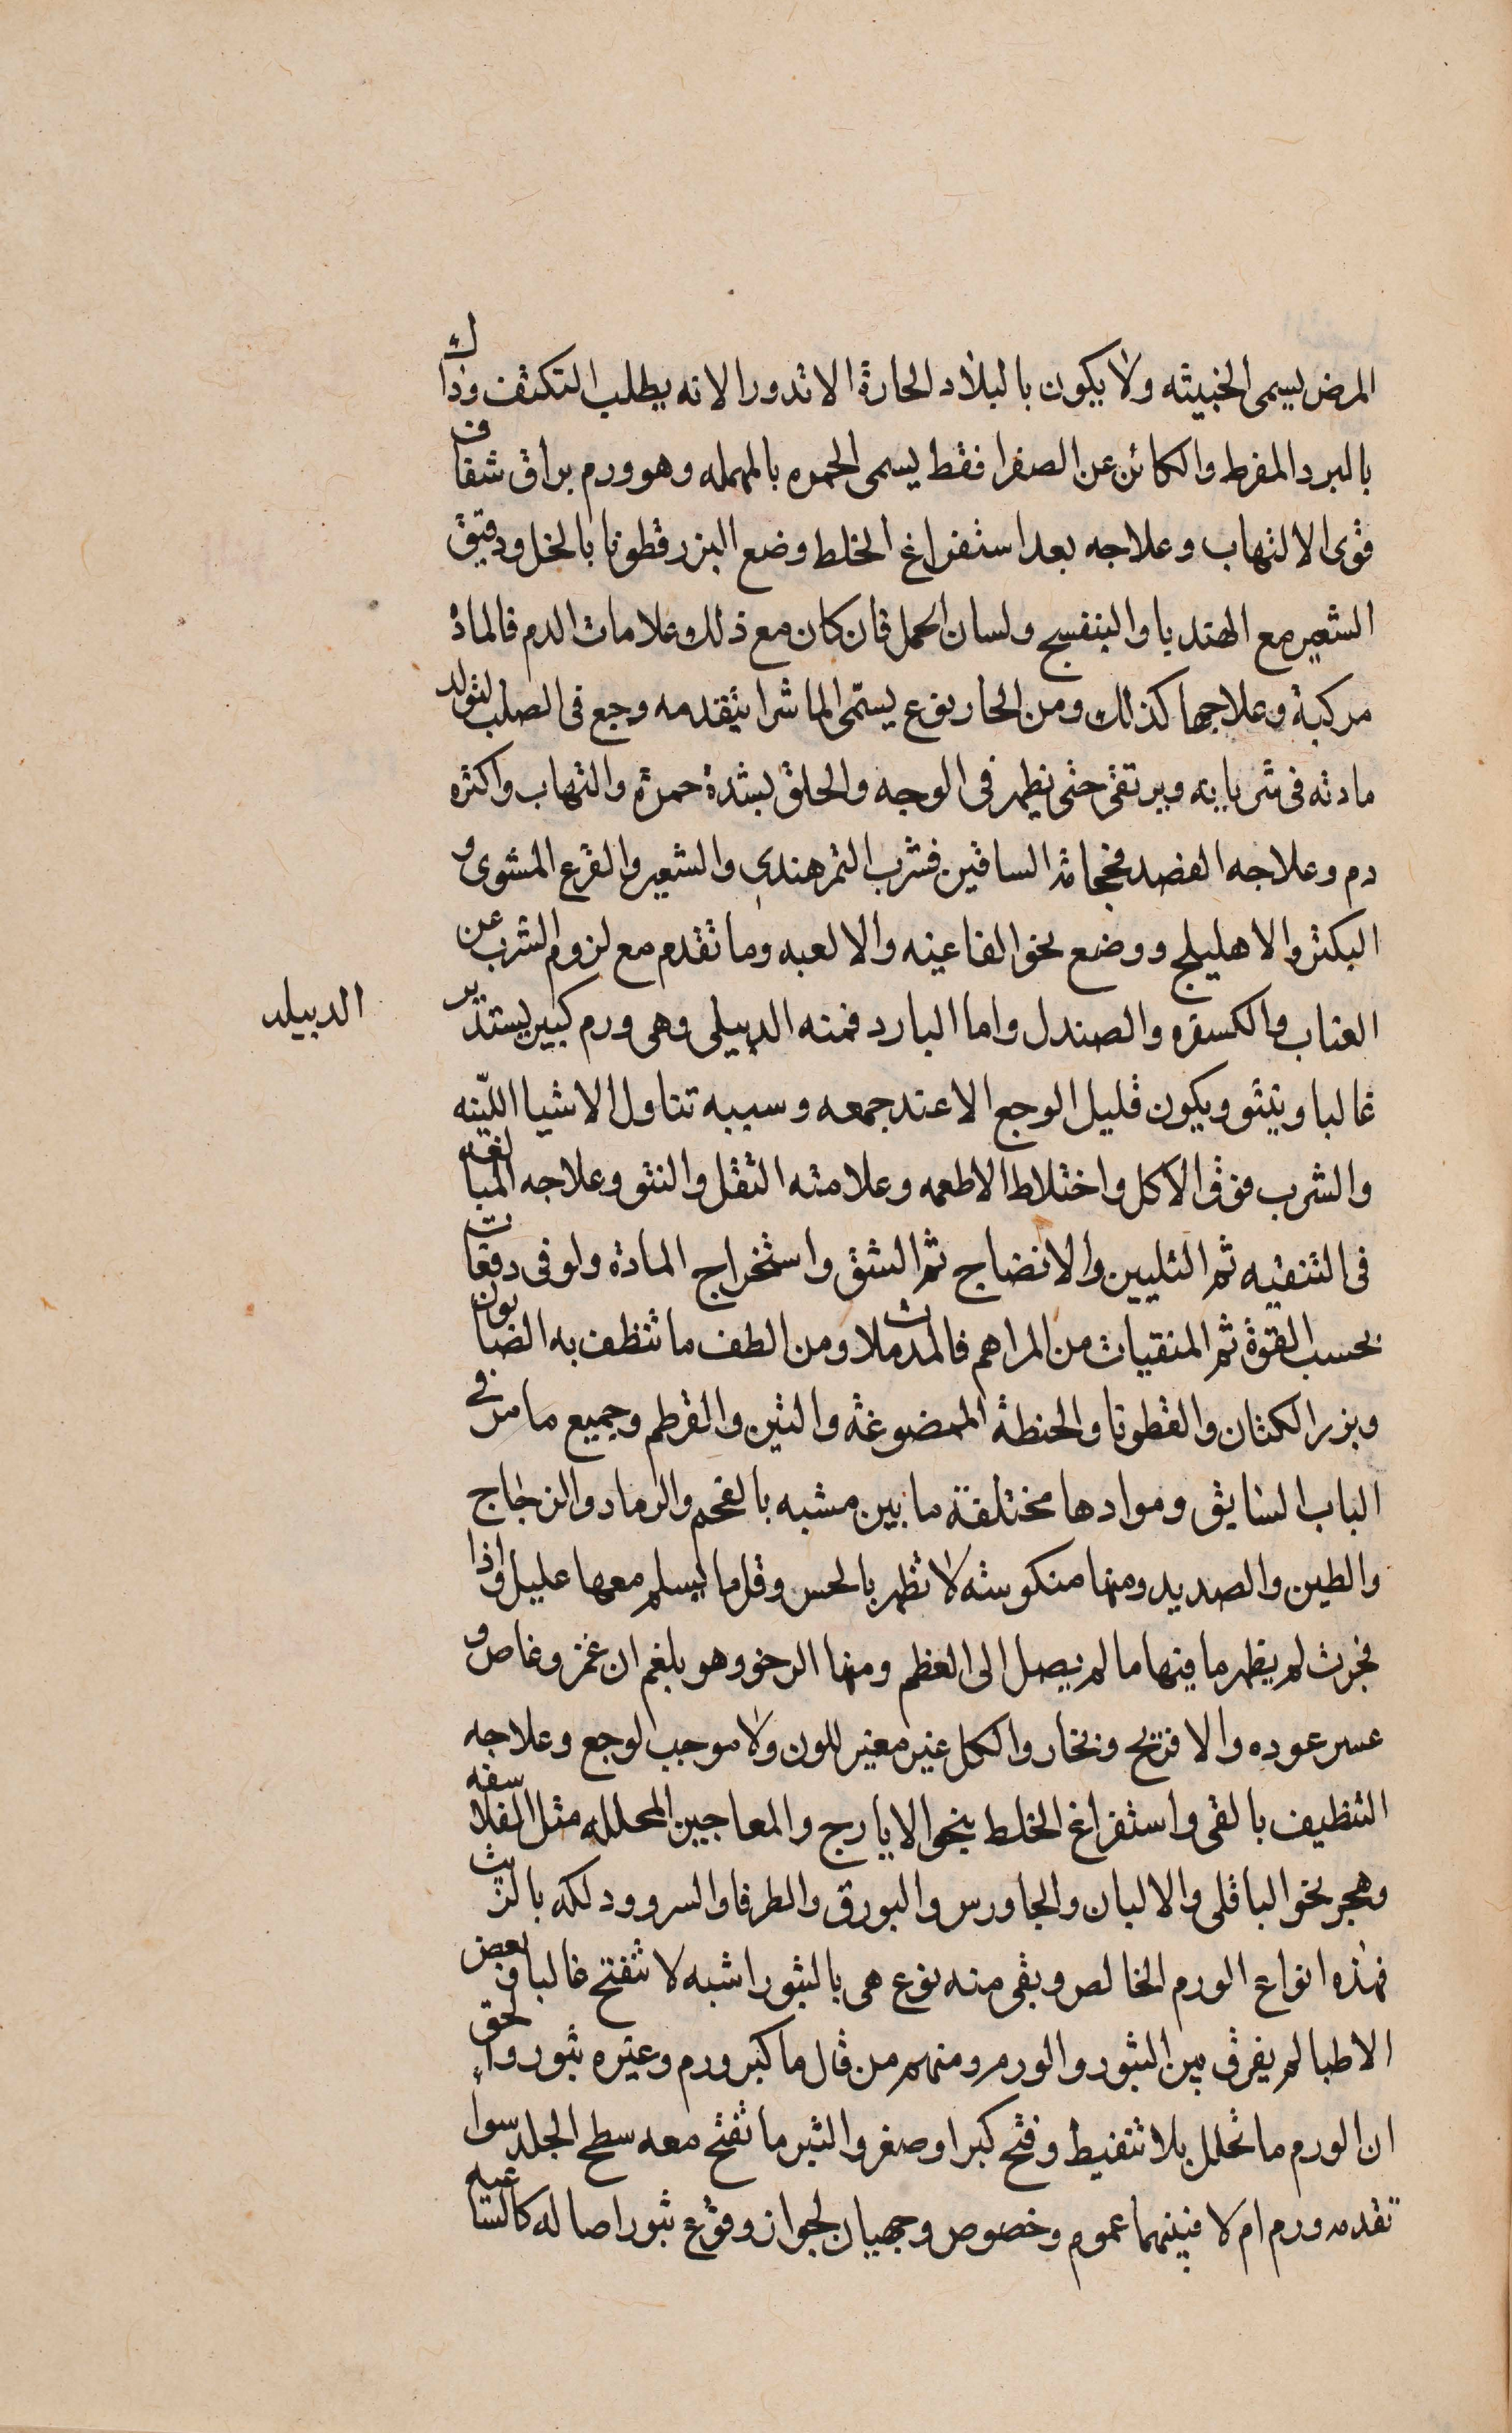 المرض يسمى الخبيثه ولا يكون بالبلاد الحارة الا ندورا لانه يطلب التكثف وذاك
بالبرد المفرط والكائن عن الصفرا فقط يسمى الحمره بالمهمله وهو ورم براق شفاف
قوى الالتهاب وعلاجه بعد استفراغ الخلط وضع البزرقطونا بالخل ودقيق
الشعير مع الهندبا والبنفسج ولسان الحمل فان كان مع ذلك علامات الدم فالمادة
مركبة وعلاجها كذلك ومن الحار نوع يسمّى الماشرا يتقدمه وجع فى الصلب لتولد
مادته فى شريانه ويرتقى حتى يظهر فى الوجه والحلق بشدة حمرة والتهاب واكثره
دم وعلاجه الفصد فحجامة الساقين فشرب التمرهندى والشعير والقرع المشوى و
البكتر والاهليلج ووضع نحو الفاغيه والالعبه وما تقدم مع لزوم الشرب عن
العناب والكسفره والصندل واما البارد فمنه الدبيلى وهى ورم كبير يستدير
الدبيله
غالبا وينثو ويكون قليل الوجع الا عند جمعه وسببه تناول الاشيا اللّينه
والشرب فوق الاكل واختلاط الاطعمه وعلامته الثقل والنتو وعلاجه المبالغه
فى التنقيه ثم التليين والانضاج ثم الشق واستخراج المادة ولو فى دفعات
بحسب القوة ثم المنقيات من المراهم فالمدملات ومن الطف ما تنظف به الصابون
وبزر الكتان والقطونا والحنطة الممضوغة والتين والقرطم وجميع ما مر فى
الباب السابق وموادها مختلفة ما بين مشبه بالفحم والرماد والزجاج
والطين والصديد ومنها منكوسه لا تظهر بالحس وقل ما يسلم معها عليل واذا
فجرت لم يظهر ما فيها ما لم يصل الى العظم ومنها الرخو وهو بلغم ان غمز وغاص و
عسر عوده والا فريح وبخار والكل غير مغير للون ولا موجب لوجع وعلاجه
التنظيف بالقى واستفراغ الخلط بنحو الايارج والمعاجين المحلله مثل الفلاسفه
وهجر نحو الباقلى والالبان والجاورس والبورق والطرفا والسرو ودلكه بالزيت
فهذه انواع الورم الخالص وبقى منه نوع هى بالبثور اشبه لا تنفتح غالبا وبعض
الاطبا لم يفرق بين البثور والورم ومنهم من قال ما كبر ورم وغيره بثور والحق
ان الورم ما تحلل بلا تنفيط وفتح كبر او صغر والبثر ما تفتح معه سطح الجلد سواء
تقدمه ورم ام لا فبينهما عموم وخصوص وجهيان لجواز وقوع بثور اصاله كالساعيه